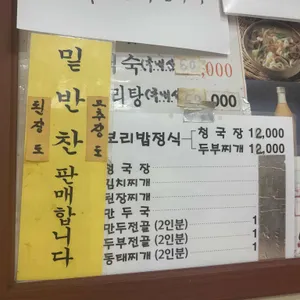 밑반찬 판매합니다
된장도
고추장도
숙(국내산)
리탕(국내산)
,000
,000
보리밥정식
청국장 12,000
두부찌개 12,000
청국장
김치찌개
된장찌개
만두국
만두전골 (2인분)
두부전골 (2인분)
동태찌개 (2인분)